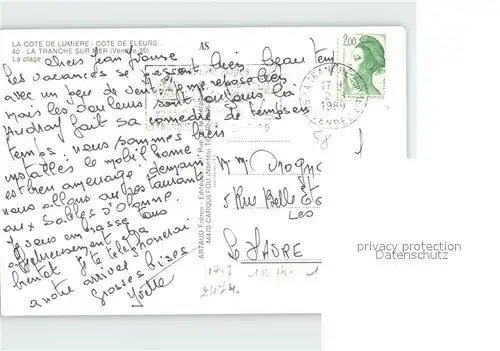 LA COTE DE LUMIERE - COTE DE FLEURS...
40 - LA TRANCHE SUR MER (Vendée 85)
La plage
AS
2,00
17
1989
VENDEE
58
chers Jean France
Les vacances se passent bien beau temps
avec un peu de vent je me repose bien
mais les douleurs sont toujours là
Audray fait sa comédie de temps en
temps nous sommes bien
installés le mobil home
est bien aménagé demain
nous allons au restaurant
aux Sables d'Olonne
Je vous embrasse tous
affectueusement à
bientôt je te téléphonerai
à notre arrivée
Grosses bises
Yvette
ARTAUD Frères - Editeurs
44470 CARQUEFOU (Nantes)
M M
5 Rue Belle
Le Havre
1947 1
privacy protection
Datenschutz